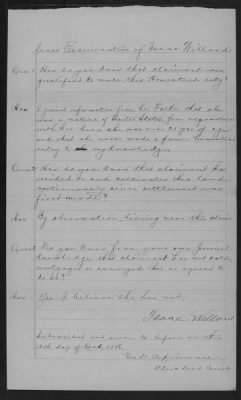 Cross Examination of Isaac Willard
Ques 1 How do you know that claimant was
qualified to make this Homestead entry?
Ans I gained information from her Father that she
was a native of United States from acquaintance
with her know she was over 21 years of age
and that she never made a former homestead
entry to my knowledge.
Ques 2 How do you know that claimant has
resided on and cultivated this land
continuously since settlement was
first made?
Ans By observation, living near this claim
Ques 3 Do you know from your own personal
knowledge that claimant has not sold,
mortgaged or conveyed this or agreed to
do so?
Ans Yes I believe she has not.
Isaac Willard
Subscribed and sworn to before me this
day of
Clerk Dist Court